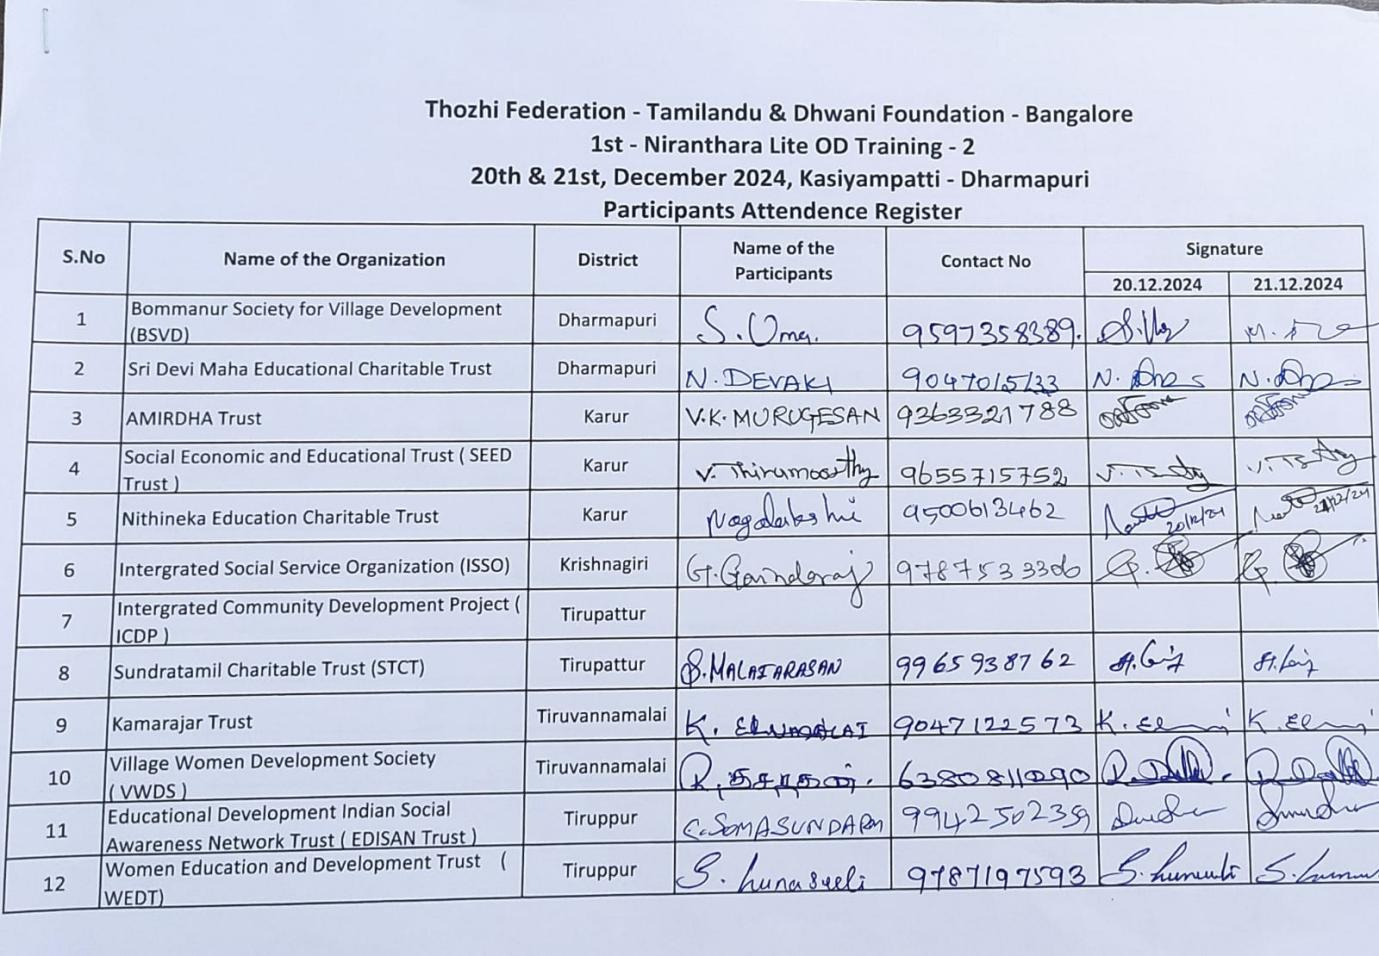 Thozhi Federation - Tamilandu & Dhwani Foundation - Bangalore
1st - Niranthara Lite OD Training - 2
20th & 21st, December 2024, Kasiyampatti - Dharmapuri
Participants Attendence Register
S.No Name of the Organization District Name of the Participants Contact No Signature
20.12.2024 21.12.2024
1 Bommanur Society for Village Development (BSVD) Dharmapuri S. Uma. 9597358389.
2 Sri Devi Maha Educational Charitable Trust Dharmapuri N. DEVAKI 9047015133
3 AMIRDHA Trust Karur V.K. MURUGESAN 9363321788
4 Social Economic and Educational Trust ( SEED Trust ) Karur V. Thirumoorthy 9655715752
5 Nithineka Education Charitable Trust Karur Nagalakshmi 9500613462 20/12/24 21/12/24
6 Intergrated Social Service Organization (ISSO) Krishnagiri G. Govindaraj 9787533306
7 Intergrated Community Development Project ( ICDP ) Tirupattur
8 Sundratamil Charitable Trust (STCT) Tirupattur 9965938762
9 Kamarajar Trust Tiruvannamalai K. 9047122573
10 Village Women Development Society ( VWDS ) Tiruvannamalai 6380811090
11 Educational Development Indian Social Awareness Network Trust ( EDISAN Trust ) Tiruppur C. SOMASUNDARM 9942502359
12 Women Education and Development Trust ( WEDT) Tiruppur S. 9787197593